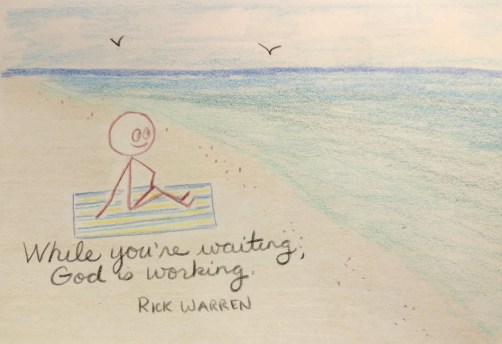 While you're waiting;
God is working.
RICK WARREN